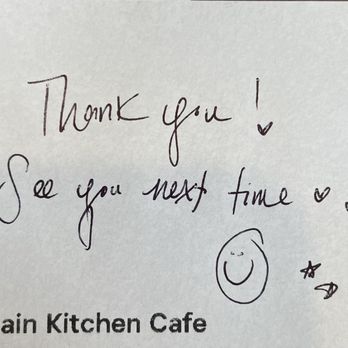 Thank you!
See you next time
ain Kitchen Cafe